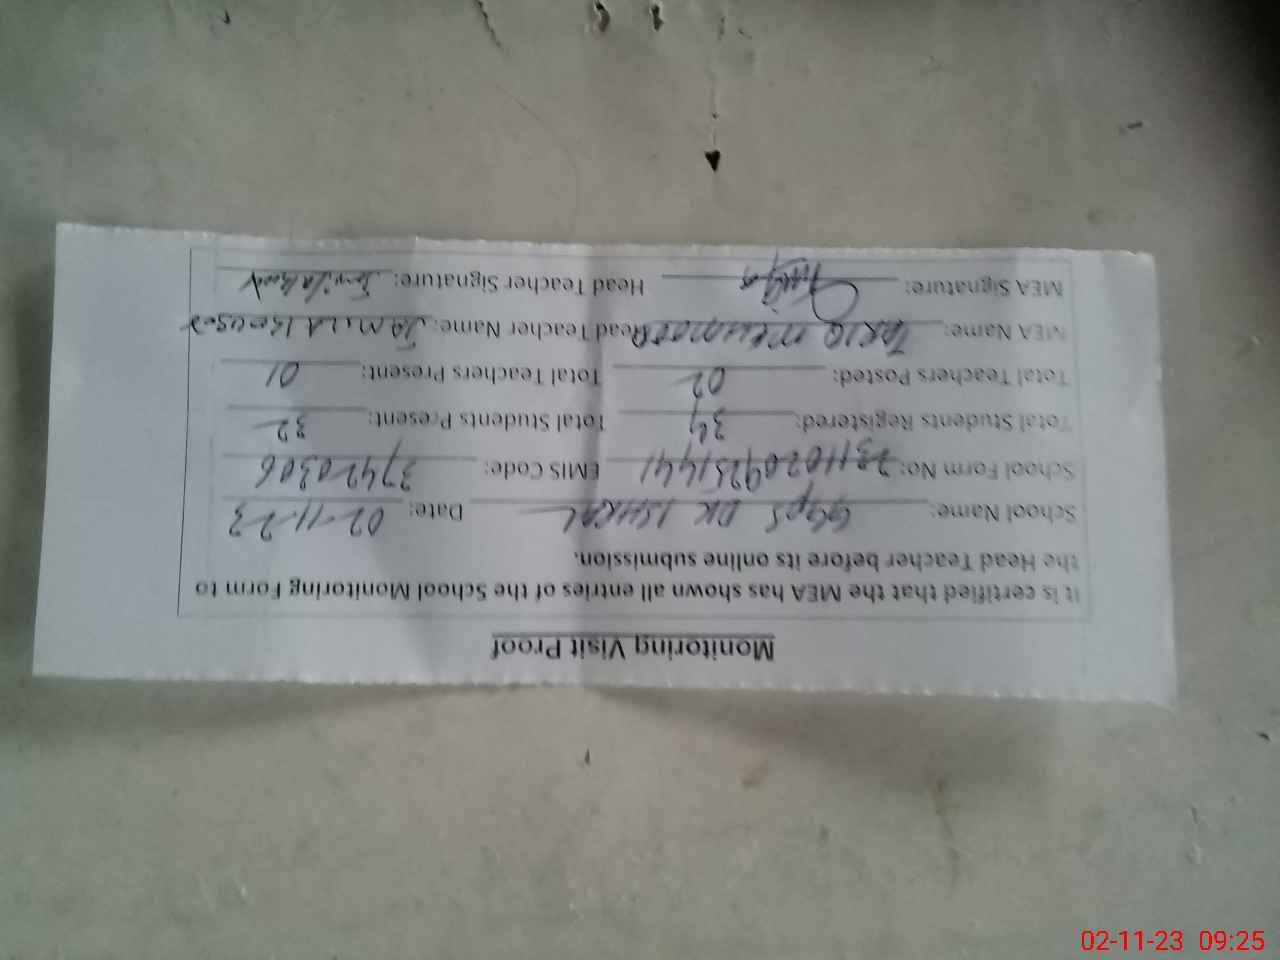 Monitoring Visit Proof
It is certified that the MEA has shown all entries of the School Monitoring Form to
the Head Teacher before its online submission.
School Name: GGPS DK ISHRAL Date: 02-11-23
School Form No: 23110209251441 EMIS Code: 37420306
Total Students Registered: 34 Total Students Present: 32
Total Teachers Posted: 02 Total Teachers Present: 01
MEA Name: TARIQ MEHMOOD Head Teacher Name: Jamila Kousar
MEA Signature: Head Teacher Signature:
02-11-23 09:25